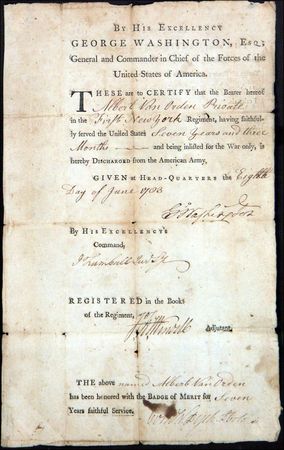 By His Excellency
GEORGE WASHINGTON, Esq;
General and Commander in Chief of the Forces of the
United States of America.
THESE are to CERTIFY that the Bearer hereof
Albert Van Orden Private
in the First New York Regiment, having faithful-
ly served the United States Seven Years and three
Months and being inlisted for the War only, is
hereby DISCHARGED from the American Army.
GIVEN at HEAD-QUARTERS the Eighth
Day of June 1783
G Washington
By HIS EXCELLENCY'S
Command,
J Trumbull Jun
REGISTERED in the Books
of the Regiment,
Adjutant.
THE above named Albert Van Orden
has been honored with the BADGE of MERIT for Seven
Years faithful Service.